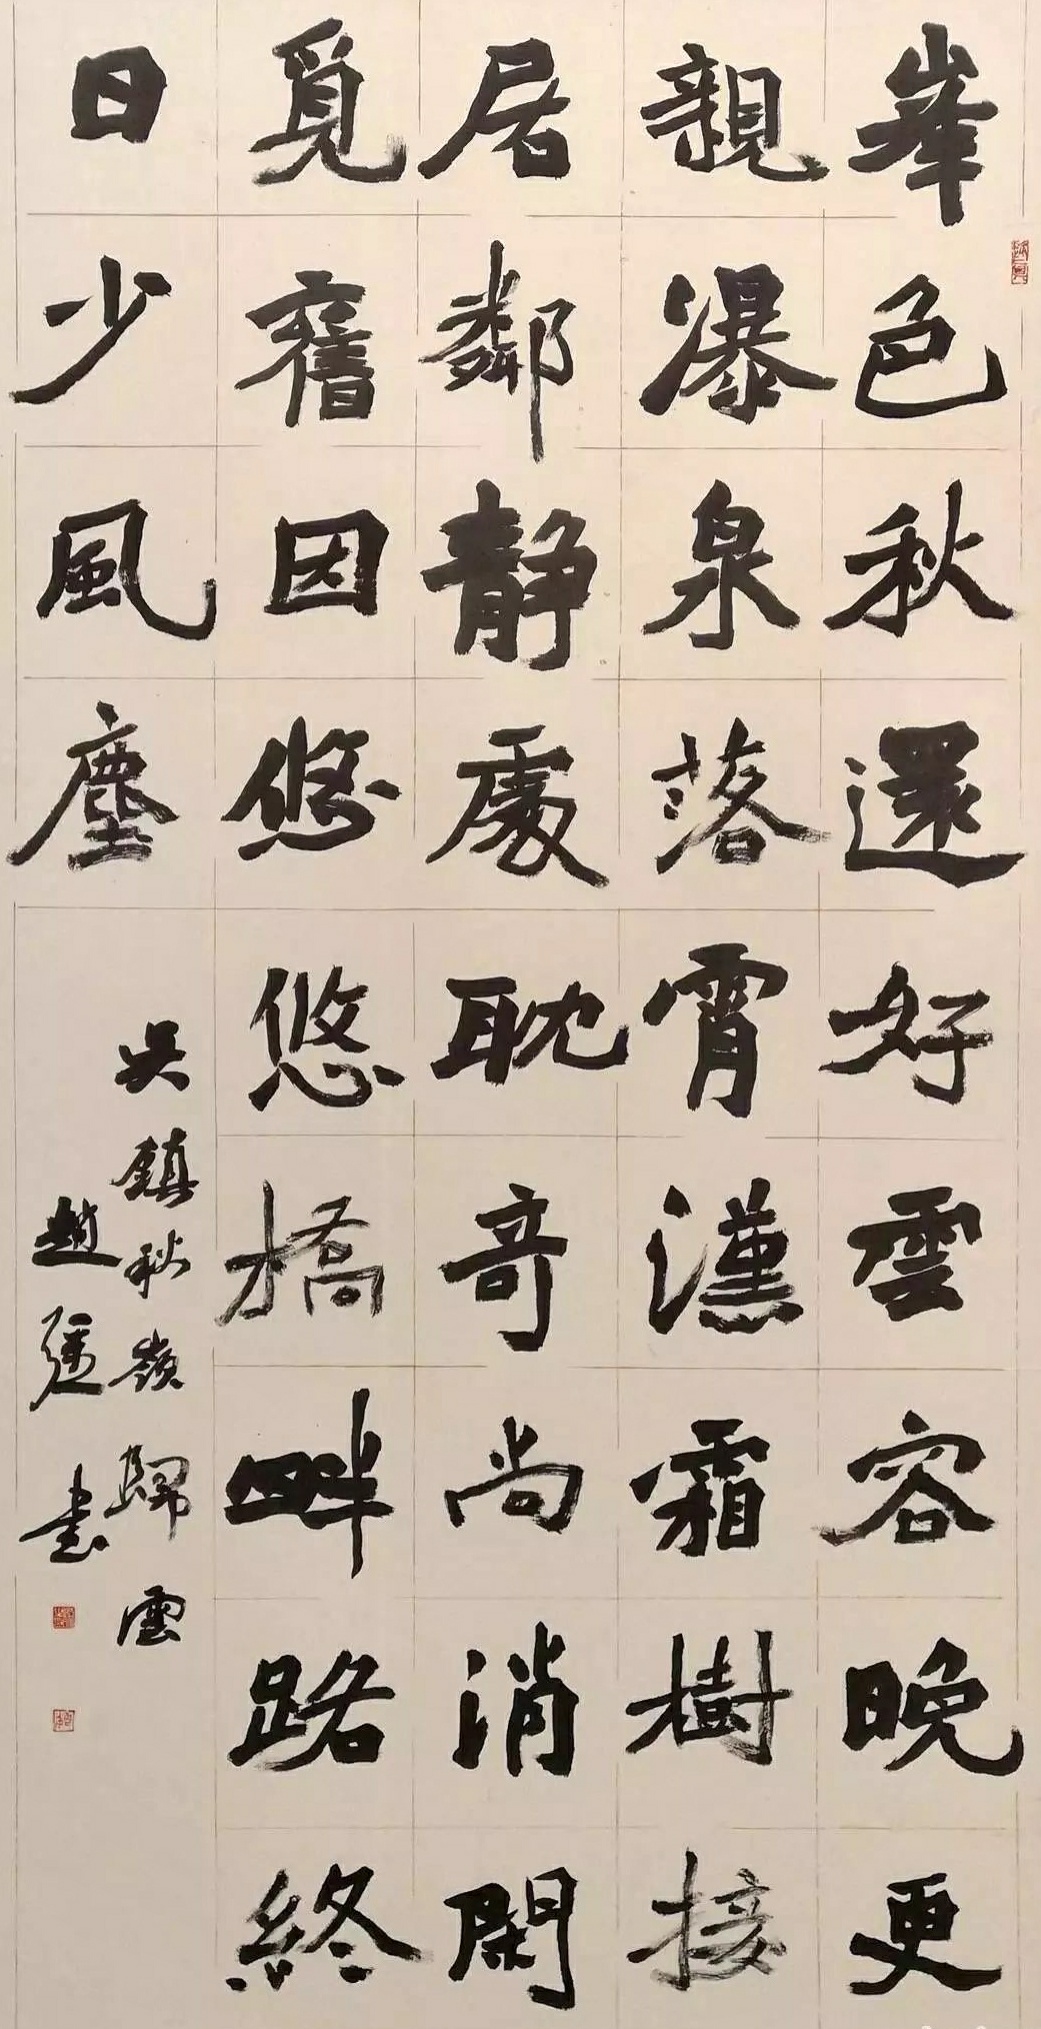 峯色秋還好雲容晚更
親瀑泉落霄漢霜樹接
居鄰靜處耽奇尚消閑
覓舊因悠悠橋畔路終
日少風塵
吳鎮秋嶺歸雲
趙彊書